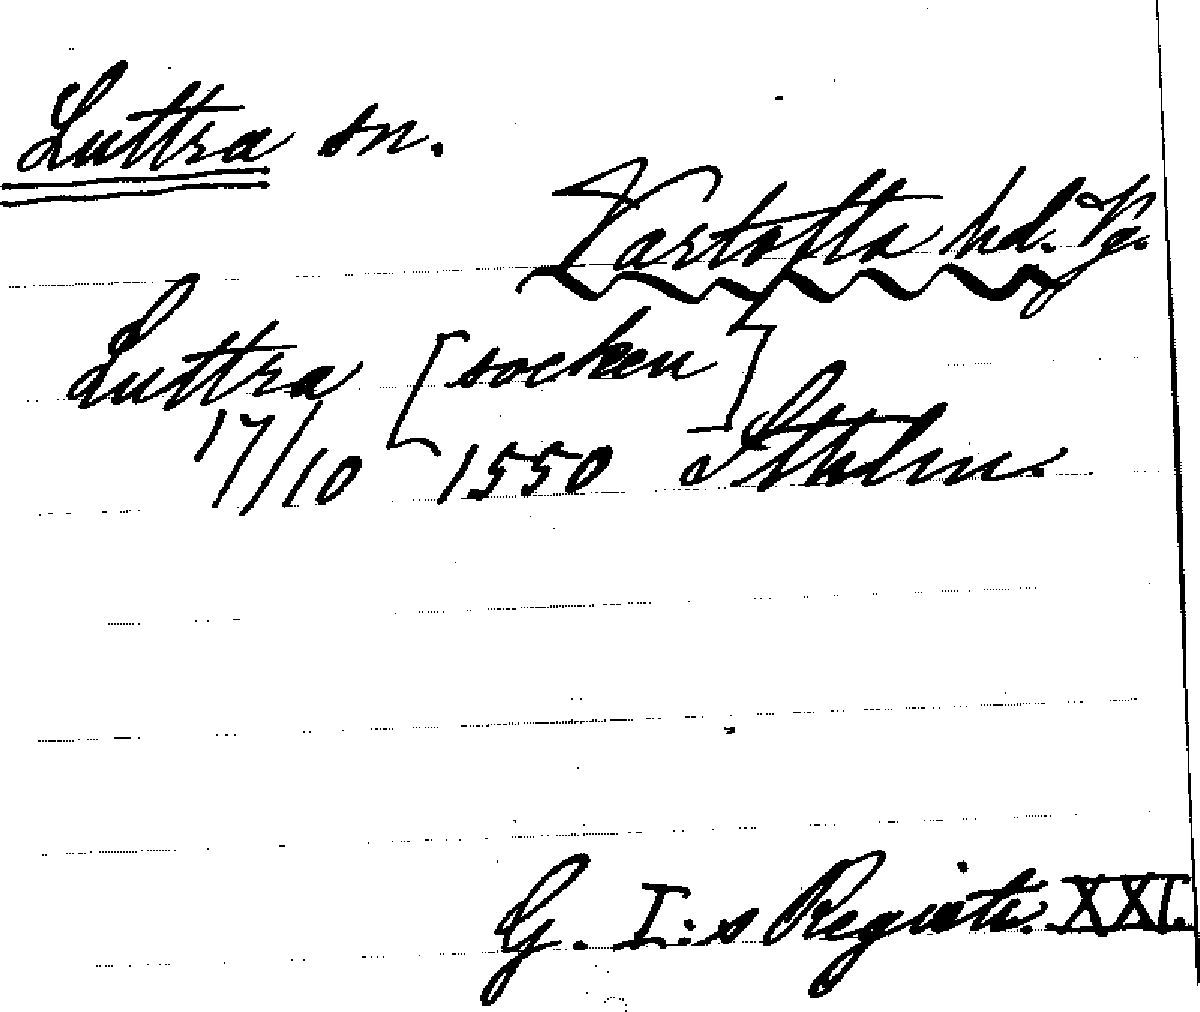 Luttra sn.
Vartofta hd. Vg.
Luttra [socken]
17/10 1550 Sthlm.
G. I:s Registr. XXI.